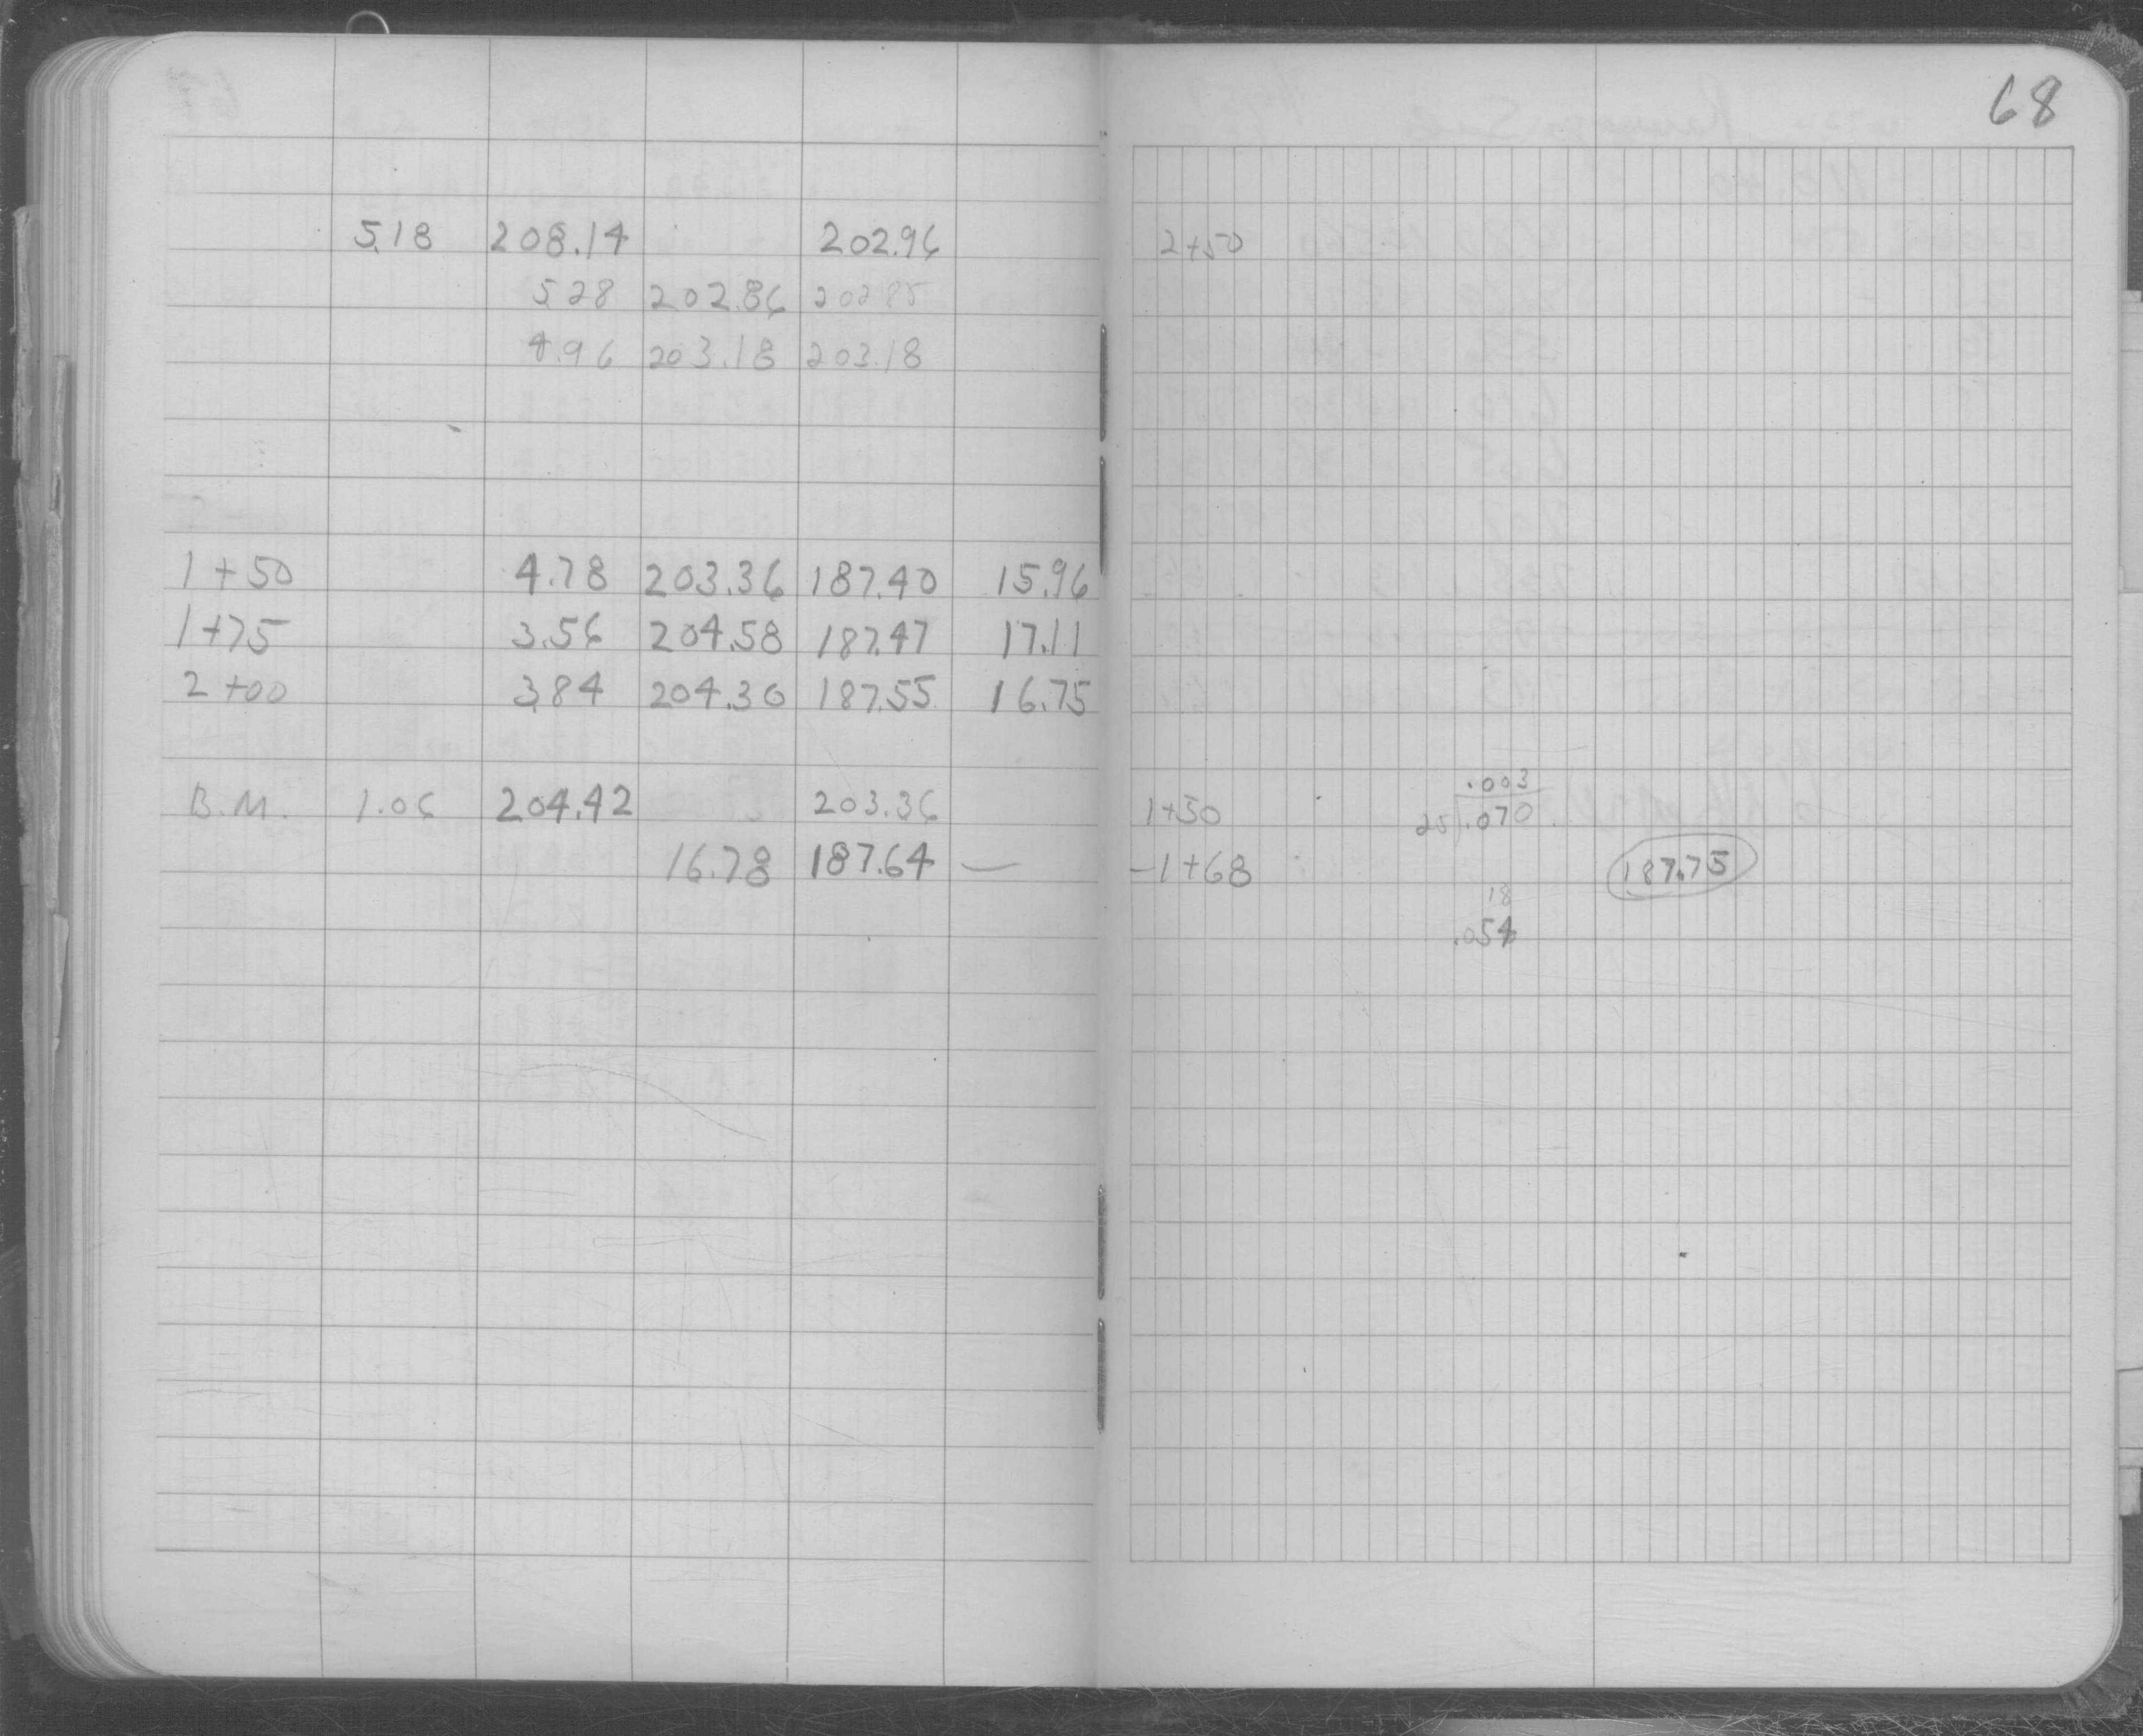 68
5.18 208.14 202.96 2+50
5.28 202.86 202.85
4.96 203.18 203.18
1+50 4.78 203.36 187.40 15.96
1+75 3.56 204.58 187.47 17.11
2+00 3.84 204.30 187.55 16.75
.003
B.M. 1.06 204.42 203.36 1+50 25).070
16.78 187.64 — -1+68 187.75
18
.054